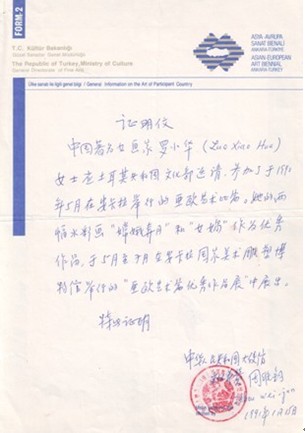 FORM-2
T.C. Kültür Bakanlığı
Güzel Sanatlar Genel Müdürlüğü
The Republic of Turkey, Ministry of Culture
General Directorate of Fine Arts
ASYA-AVRUPA
SANAT BİENALİ
ANKARA-TÜRKİYE
ASIAN-EUROPEAN
ART BIENNAL
ANKARA-TURKEY
Ülke sanatı ile ilgili genel bilgi / General Information on the Art of Participant Country
证明文
中国著名女画家罗小华 (Luo Xiao Hua)
女士应土耳其共和国文化部邀请，参加了于1990
年5月在安卡拉举行的亚欧艺术比赛。她的两
幅水彩画"嫦娥奔月"和"女娲"作为优秀
作品，于5月至7月在安卡拉国家美术雕塑博
物馆举行的"亚欧艺术节优秀作品展"中展出。
特此证明
中华人民共和国大使馆
1991年1月15日